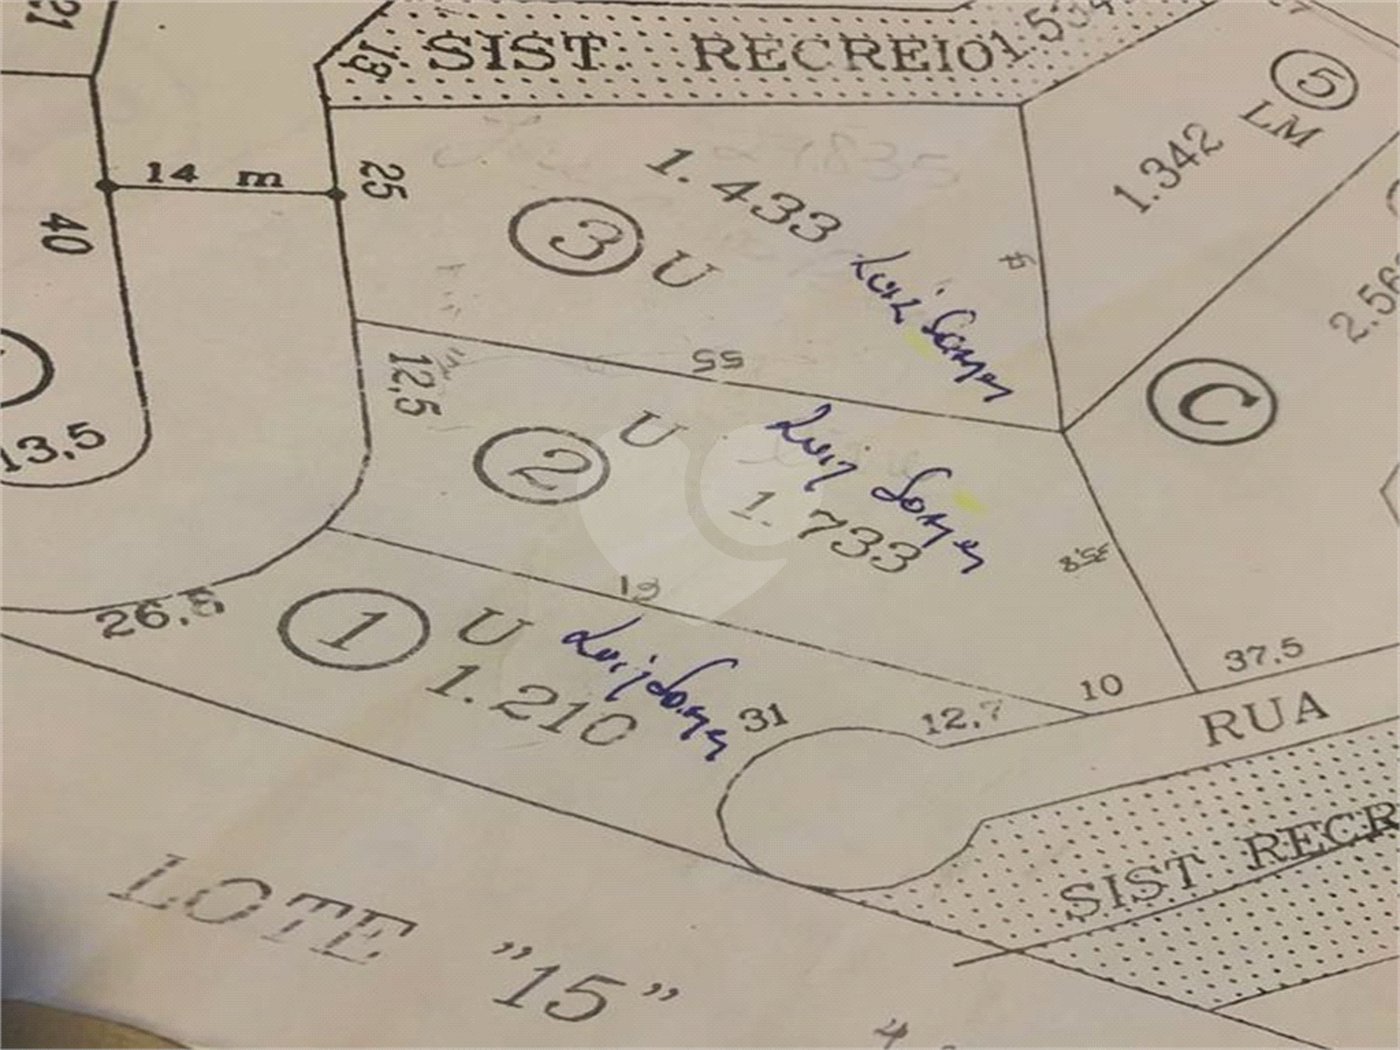 21
13
SIST. RECREIO
1.534
5
LM
1.342
14 m
25
40
3 U
1.433
Luiz
55
12,5
2 U
Luiz
1.733
C
13,5
35,8
26,6
1 U
Luiz
1.210
31
12,7
10
37.5
RUA
SIST RECR
LOTE "15"
4